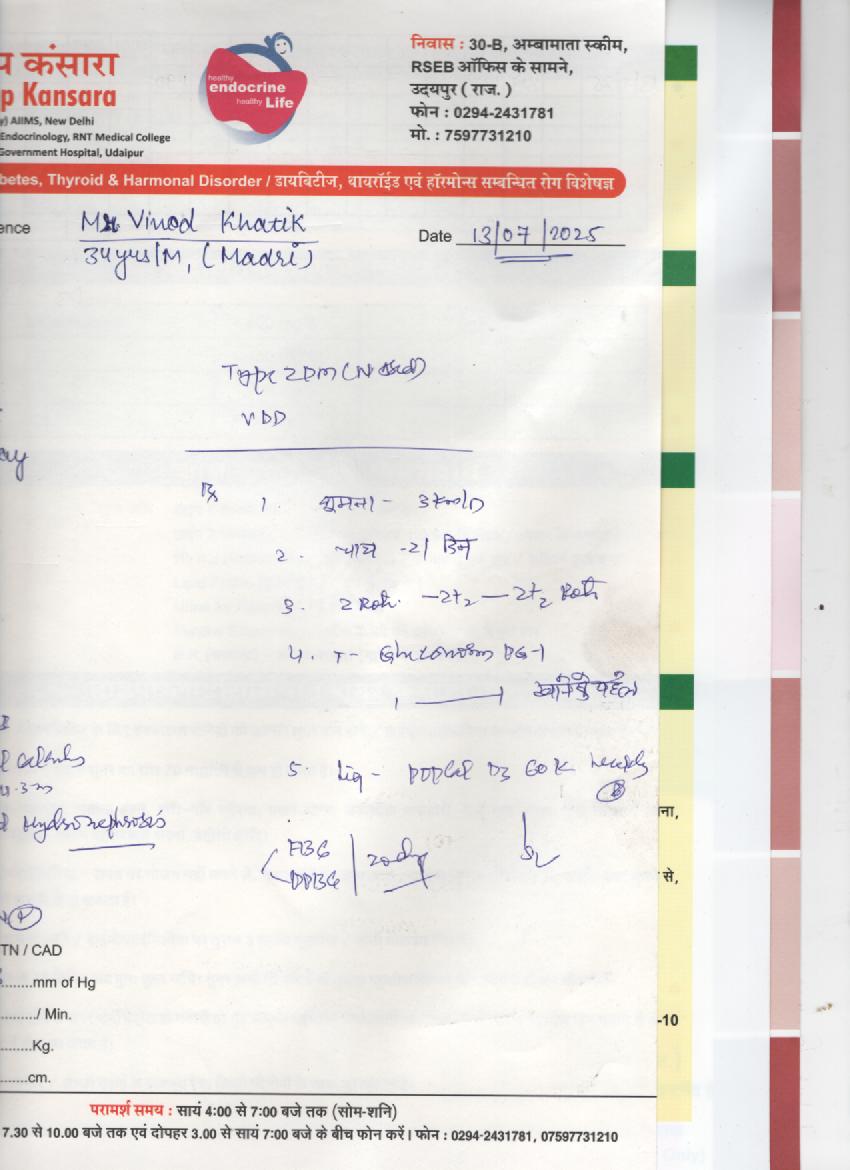 य कंसारा
p Kansara
y) AIIMS, New Delhi
Endocrinology, RNT Medical College
Government Hospital, Udaipur
healthy
endocrine
healthy Life
निवास : 30-B, अम्बामाता स्कीम,
RSEB ऑफिस के सामने,
उदयपुर ( राज. )
फोन : 0294-2431781
मो. : 7597731210
betes, Thyroid & Harmonal Disorder / डायबिटीज, थायरॉईड एवं हॉरमोन्स सम्बन्धित रोग विशेषज्ञ
ence Mr. Vinod Khatik
Date 13/07/2025
34yrs/M, (Madri)
Type 2 DM (N)
VDD
Rx 1. घूमना - 3 km/D
2. चाय - 2/ दिन
3. 2 Roti. - 2+2 - 2+2 Roti
4. T- PG-1
1 ——— 1 खाने से पहले
5. Liq - D3 60K weekly
FBG
PPBG 20 day
Hydronephrosis
TN / CAD
........mm of Hg
......../ Min.
........Kg.
........cm.
ना,
से,
-10
परामर्श समय : सायं 4:00 से 7:00 बजे तक (सोम-शनि)
7.30 से 10.00 बजे तक एवं दोपहर 3.00 से सायं 7:00 बजे के बीच फोन करें। फोन : 0294-2431781, 07597731210